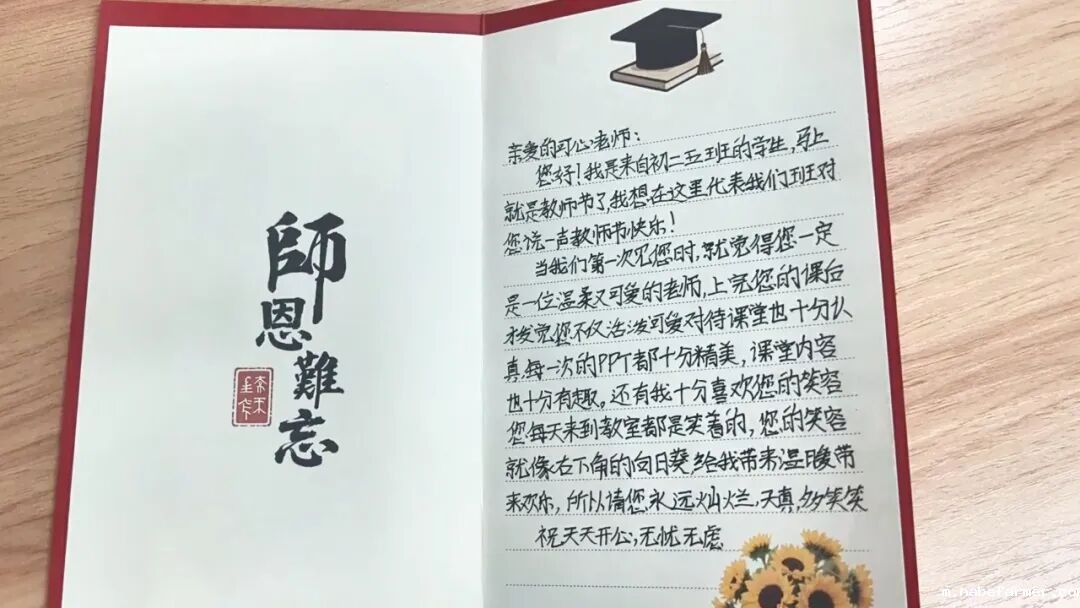 師
恩
難
忘
亲爱的可心老师:
您好!我是来自初二五班的学生,马上
就是教师节了,我想在这里代表我们班对
您说一声教师节快乐!
当我们第一次见您时,就觉得您一定
是一位温柔又可爱的老师,上完您的课后
才发觉您不仅活泼可爱对待课堂也十分认
真,每一次的PPT都十分精美,课堂内容
也十分有趣。还有我十分喜欢您的笑容
您每天来到教室都是笑着的,您的笑容
就像右下角的向日葵,给我带来温暖带
来欢乐,所以请您永远灿烂,天真,多笑笑
祝天天开心,无忧无虑